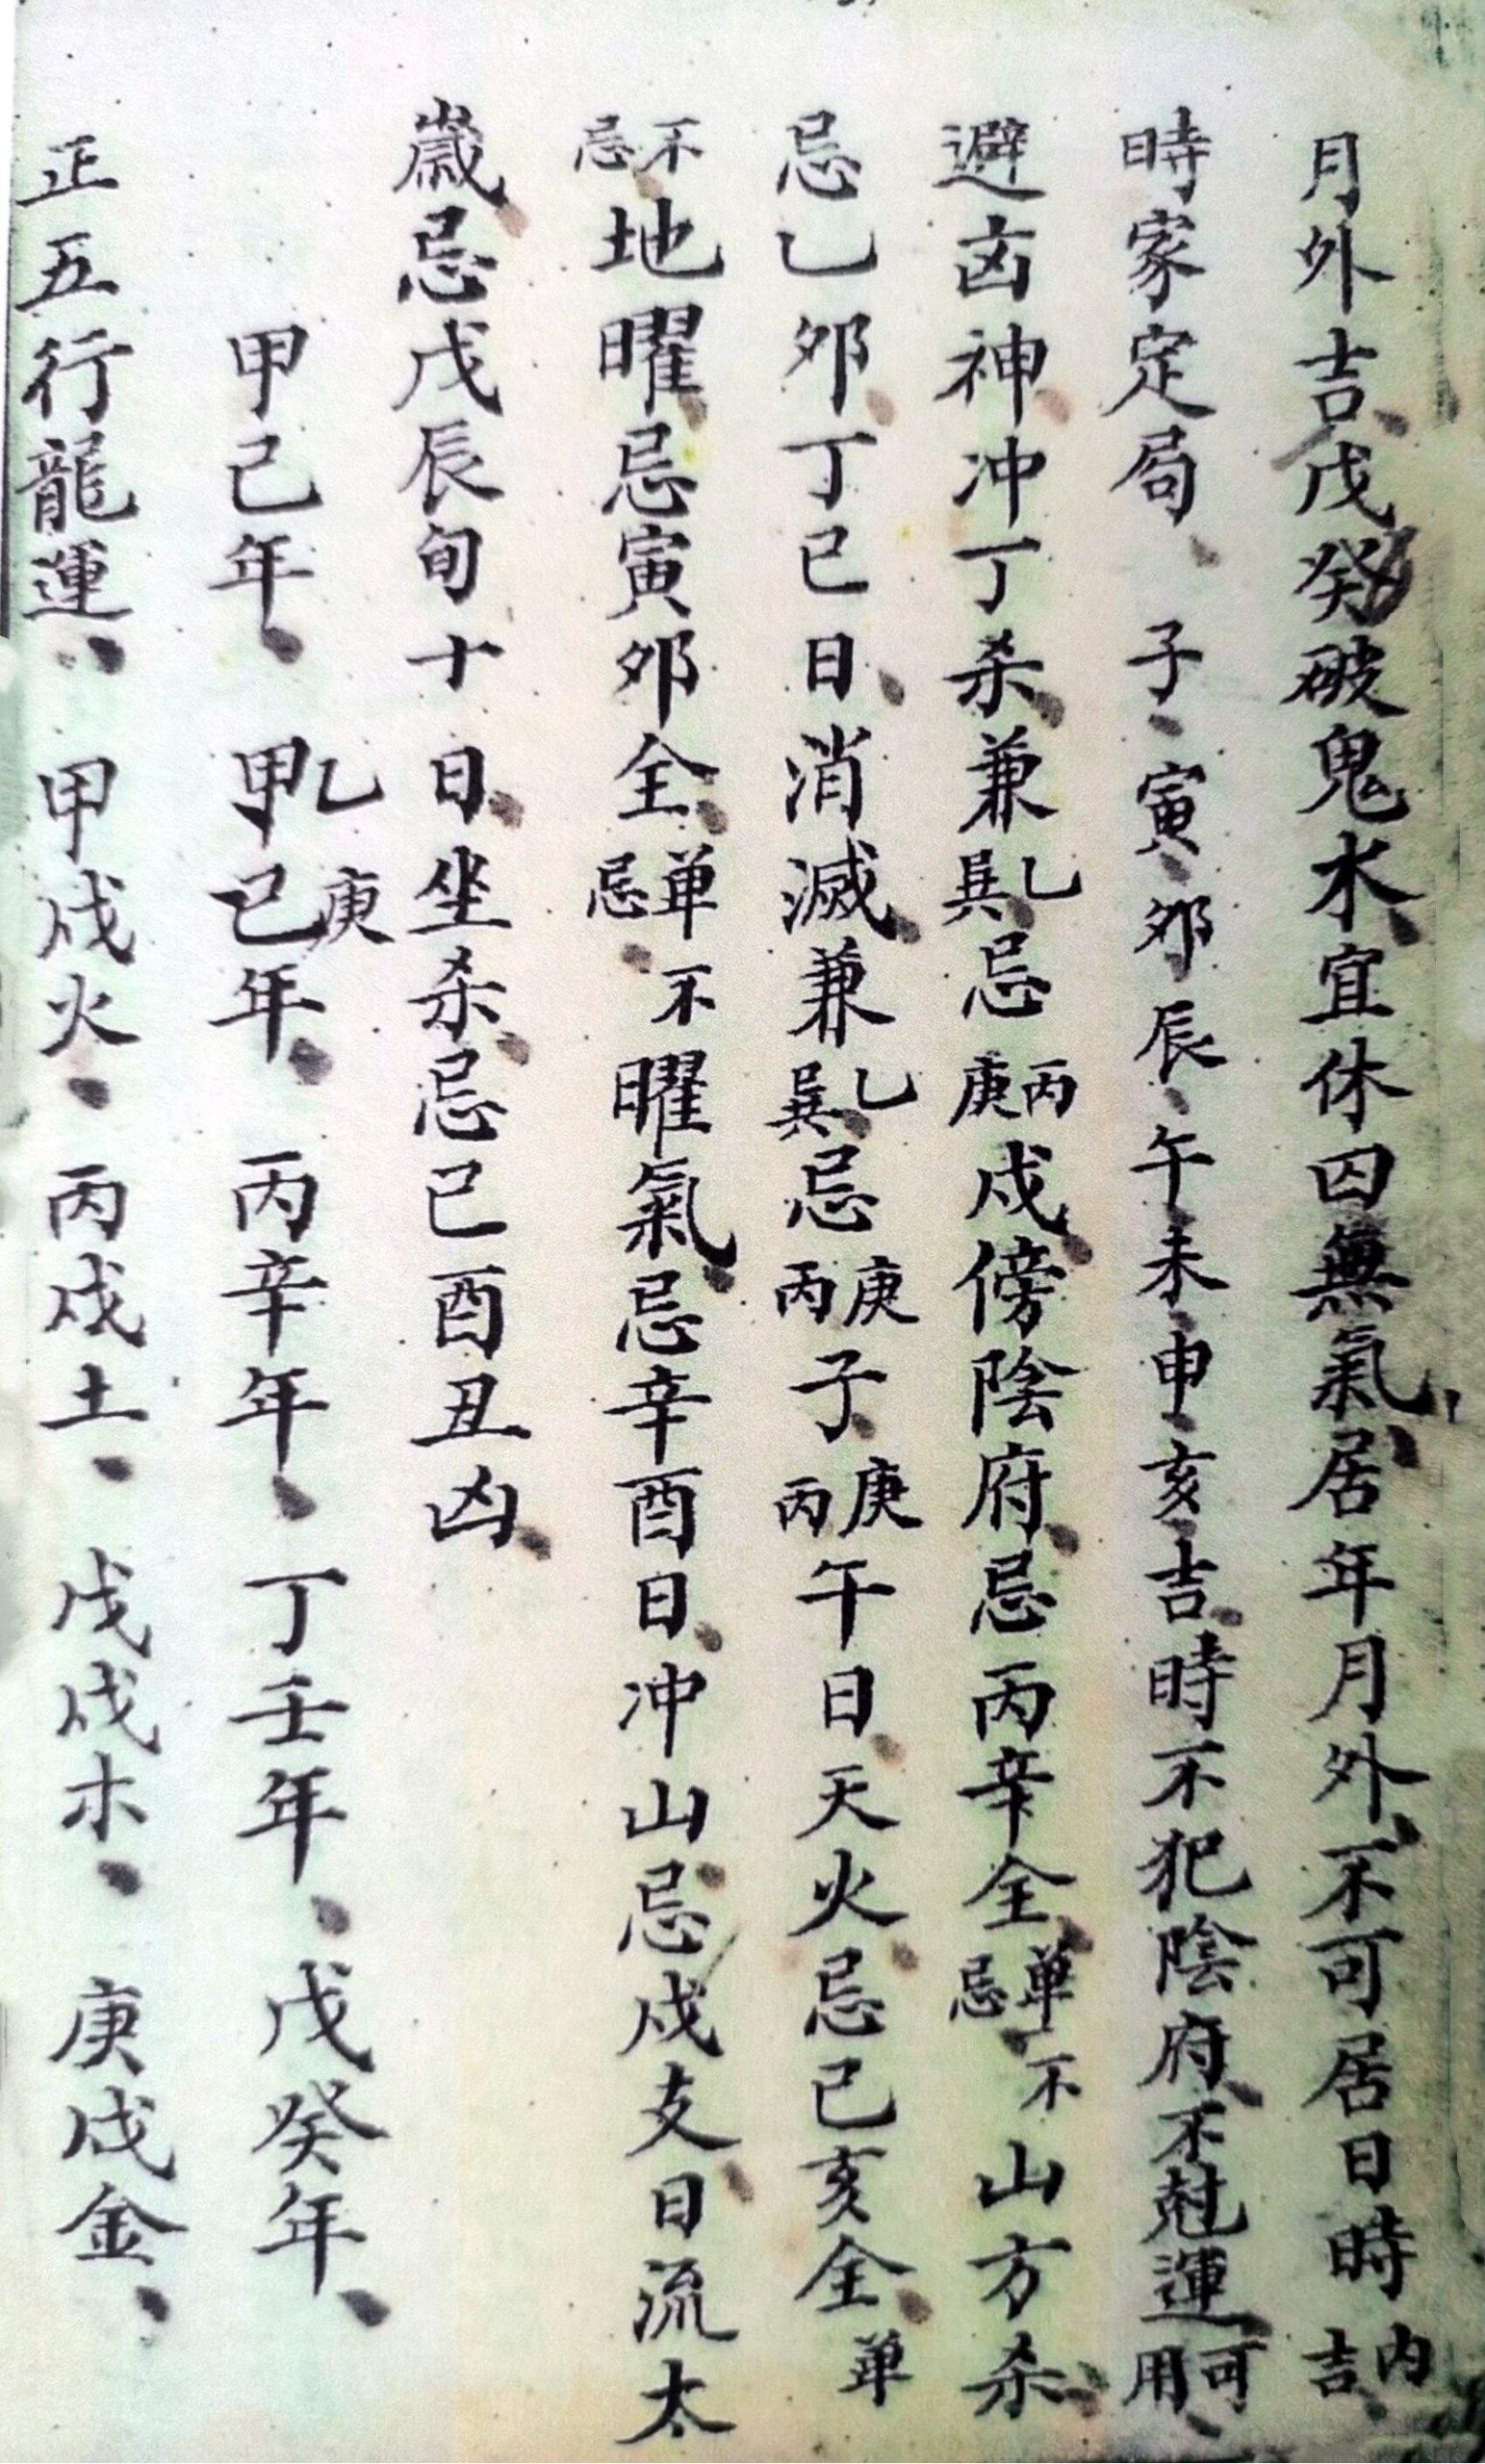 月外吉、戊癸破鬼木、宜休囚無氣、居年月外、不可居日時内吉、
時家定局、子、寅、夘、辰、午、未、申、亥、吉、時不犯陰府、不尅運可用、
避凶神冲丁杀、兼乙巽、忌丙庚戌、傍陰府、忌丙辛全、单不忌、山方杀、
忌乙夘、丁巳日、消滅、兼乙巽、忌庚丙子、庚丙午日、天火、忌己亥全、单
不忌、地曜、忌寅夘全、单不忌、曜氣、忌辛酉日、冲山、忌戌支日、流太
歲、忌戊辰旬十日、坐杀、忌巳酉丑凶、
甲己年、乙庚年、丙辛年、丁壬年、戊癸年、
正五行龍運、甲戌火、丙戌土、戊戌木、庚戌金、